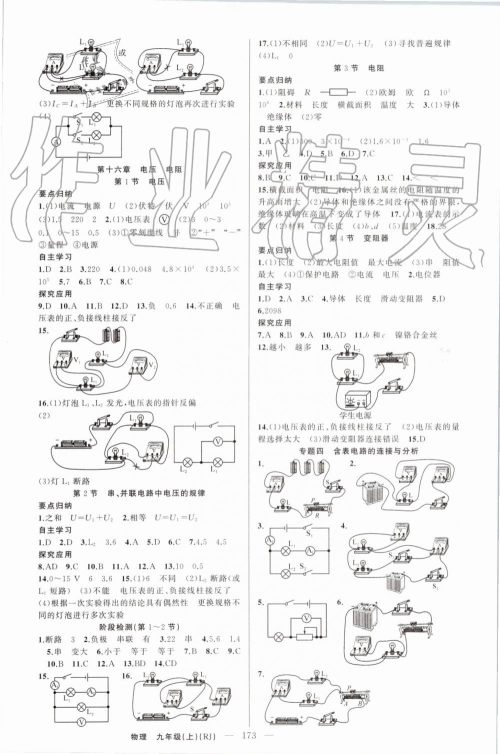 或
(3)I_C=I_A+I_B 更换不同规格的灯泡再次进行实验
(4)
第十六章 电压 电阻
第1节 电压
要点归纳
1.(1)电流 电源 U (2)伏特 伏 V
(3)1.5 220 2 2.(1)电压表 V (2)3 0~3
0.1 0~15 0.5 (3)①零刻度线 ②“+” “-”
③量程 ④电源
自主学习
1.D 2.B 3.220 4.(1)0.048 4.8×10⁴ (2)3.5×
10⁵ 5.7 6.B 7.C 8.C
探究应用
9.D 10.A 11.B 12.D 13.负 0.6 14.不正确 电
压表的正、负接线柱接反了
15.
16.(1)灯泡L₁、L₂发光,电压表的指针反偏
(2)
(3)灯L₁断路
第2节 串、并联电路中电压的规律
要点归纳
1.之和 U=U₁+U₂ 2.相等 U=U₁=U₂
自主学习
1.D 2.D 3.L₂ 3.6 4.A 5.D 6.C 7.4.5 4.5
探究应用
8.AD 9.C 10.B 11.A 12.A 13.10 0.5
14.0~15 V 6 3.6 15.(1)6 不同 (2)L₂断路(或
L₁短路) (3)不能 电压表的正、负接线柱接反了
(4)根据一次实验得出的结论具有偶然性 更换规格不
同的灯泡进行多次实验
阶段检测(第1~2节)
1.断路 3 2.负极 串联 有 3.22 串 4.5.6 1.4
5.串 变大 6.小于 等于 等于 7.B 8.C 9.C
10.B 11.C 12.A 13.BD 14.CD
15. 16.
17.(1)不相同 (2)U=U₁+U₂ (3)寻找普遍规律
(4)L₁ 0
第3节 电阻
要点归纳
1.(1)阻碍 R (2)欧姆 欧 Ω 10³
10⁶ 2.材料 长度 横截面积 温度 大 3.(1)导体
绝缘体 (2)零
自主学习
3.甲 乙 4.D 5.B 6.D 7.C
探究应用
15.横截面积 电阻 16.(1)该金属丝的电阻随温度的
升高而增大 (2)导体和绝缘体之间没有严格的界限,
绝缘玻璃在高温下变成了导体 17.(1)电流表的示
数 (2)材料 (3)长度 (4)b、d (5)温度 18.25
第4节 变阻器
要点归纳
1.(1)长度 (2)最大电阻值 最大电流 (3)串 阻值
最大 (4)①保护电路 ②电流 电压 2.电位器
自主学习
1.D 2.A 3.C 4.导体 长度 滑动变阻器 5.D
6.2098
探究应用
7.A 8.B 9.A 10.AD 11.b和c 镍铬合金丝
12.越小 越多 13.
学生电源
14.(1)电压表的正、负接线柱接反了 (2)电压表的量
程选择太大 (3)滑动变阻器连接错误 15.D
专题四 含表电路的连接与分析
1. 2.
3. 4.
5. 6.
7.
物理 九年级(上)(RJ) — 173 —